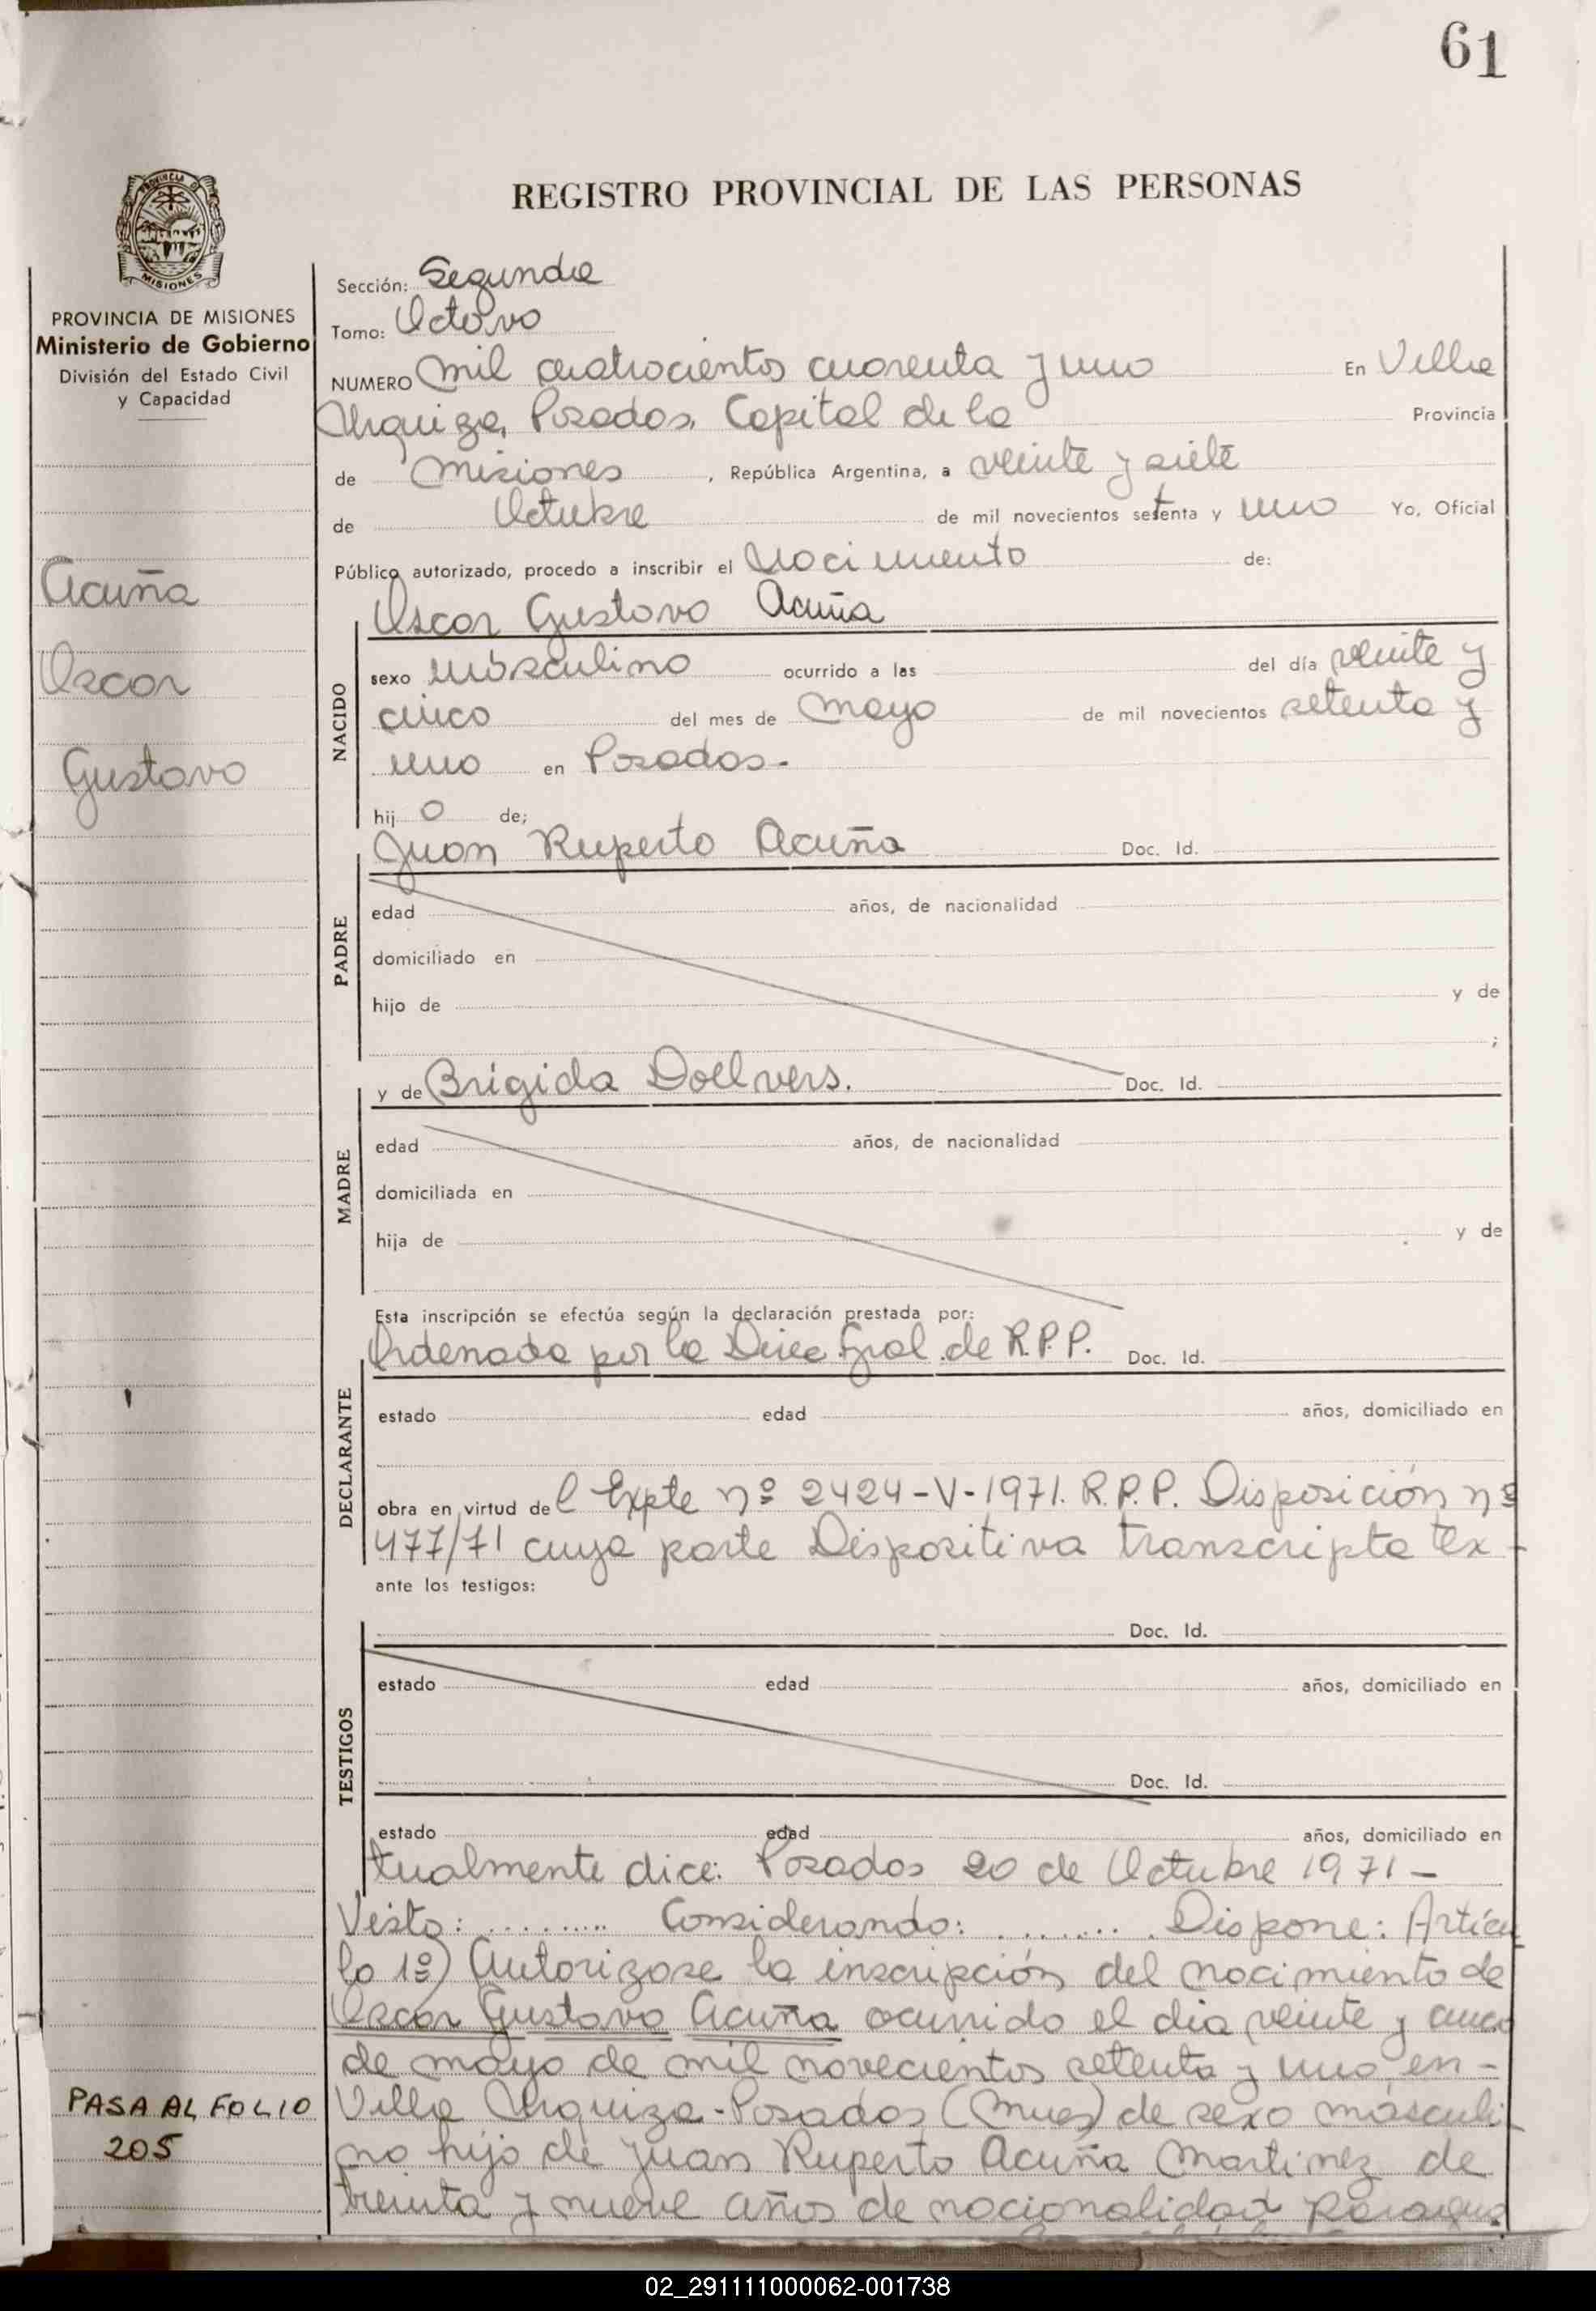 61
REGISTRO PROVINCIAL DE LAS PERSONAS
PROVINCIA DE MISIONES
Ministerio de Gobierno
División del Estado Civil
y Capacidad
Acuña
Oscar
Gustavo
Sección: Segunda
Tomo: Octavo
NUMERO mil cuatrocientos cuarenta y uno En Villa
Urquiza, Posadas, Capital de la Provincia
de Misiones, República Argentina, a veinte y siete
de Octubre de mil novecientos setenta y uno Yo, Oficial
Público autorizado, procedo a inscribir el nacimiento de:
Oscar Gustavo Acuña
NACIDO
sexo másculino ocurrido a las del día veinte y
cinco del mes de mayo de mil novecientos setenta y
uno en Posadas.
hij o de;
Juan Ruperto Acuña Doc. Id.
PADRE
edad años, de nacionalidad
domiciliado en
hijo de y de
;
y de Brígida Dollvers. Doc. Id.
MADRE
edad años, de nacionalidad
domiciliada en
hija de y de
Esta inscripción se efectúa según la declaración prestada por:
Ordenada por la Direc Gral. de R.P.P. Doc. Id.
DECLARANTE
estado edad años, domiciliado en
obra en virtud del Expte nº 2424-V-1971. R.P.P. Disposición nº
477/71 cuya parte Dispositiva transcripta tex-
ante los testigos:
Doc. Id.
TESTIGOS
estado edad años, domiciliado en
Doc. Id.
estado edad años, domiciliado en
tualmente dice: Posadas 20 de Octubre 1971 -
Visto: ......... Considerando: ........ Dispone: Artícu
lo 1º) Autorizase la inscripción del nacimiento de
Oscar Gustavo Acuña ocurrido el dia veinte y cinco
de mayo de mil novecientos setenta y uno, en -
Villa Urquiza - Posadas (Mnes) de sexo másculi
no hijo de Juan Ruperto Acuña Martinez de
treinta y nueve años de nacionalidad Paragua
PASA AL FOLIO
205
02_291111000062-001738